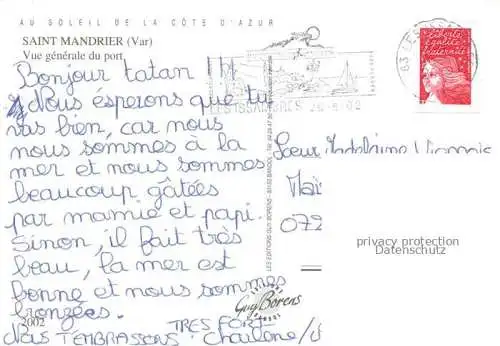 AU SOLEIL DE LA CÔTE D'AZUR
SAINT MANDRIER (Var)
Vue générale du port
Bonjour tatan !
Nous espérons que tu
vas bien, car nous
nous sommes à la
mer et nous sommes
beaucoup gâtées
par mamie et papi.
Sinon, il fait très
beau, la mer est
bonne et nous sommes
bronzées.
2002
Nous T'EMBRASSONS TRES FORT
Charlène
LES ISSAMBRES
83 LES ISSA
Liberté
égalité
fraternité
Soeur Madeleine
072
privacy protection
Datenschutz
LES EDITIONS GUY BORENS
Guy Borens